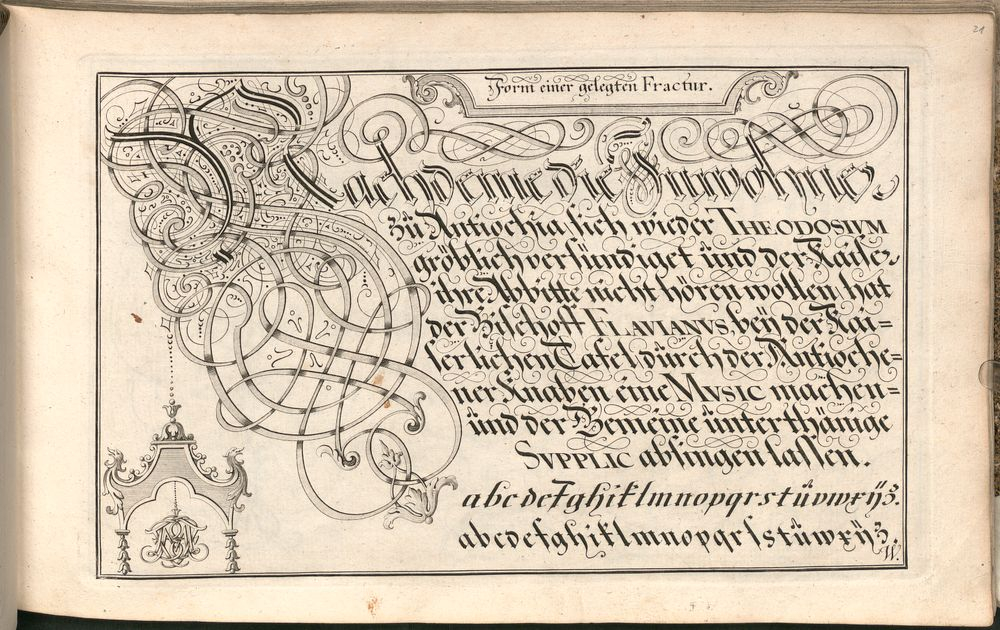 21
Form einer gelegten Fractur.
Nachdeme die Innwohner
zu Antiochia sich wieder THEODOSIVM
gröblich versündiget und der Kaiser
ihre Abbitte nicht hören wollen, hat
der Bischoff FLAVIANVS, beÿ der Kai=
serlichen Tafel durch der Antioche=
ner Knaben eine MVSIC machen=
und der Gemeine unterthänige
SVPPLIC absingen lassen.
abcdefghiklmnopqrstüvwxÿz.
abcdefghiklmnopqrſstüwxÿz.
W.